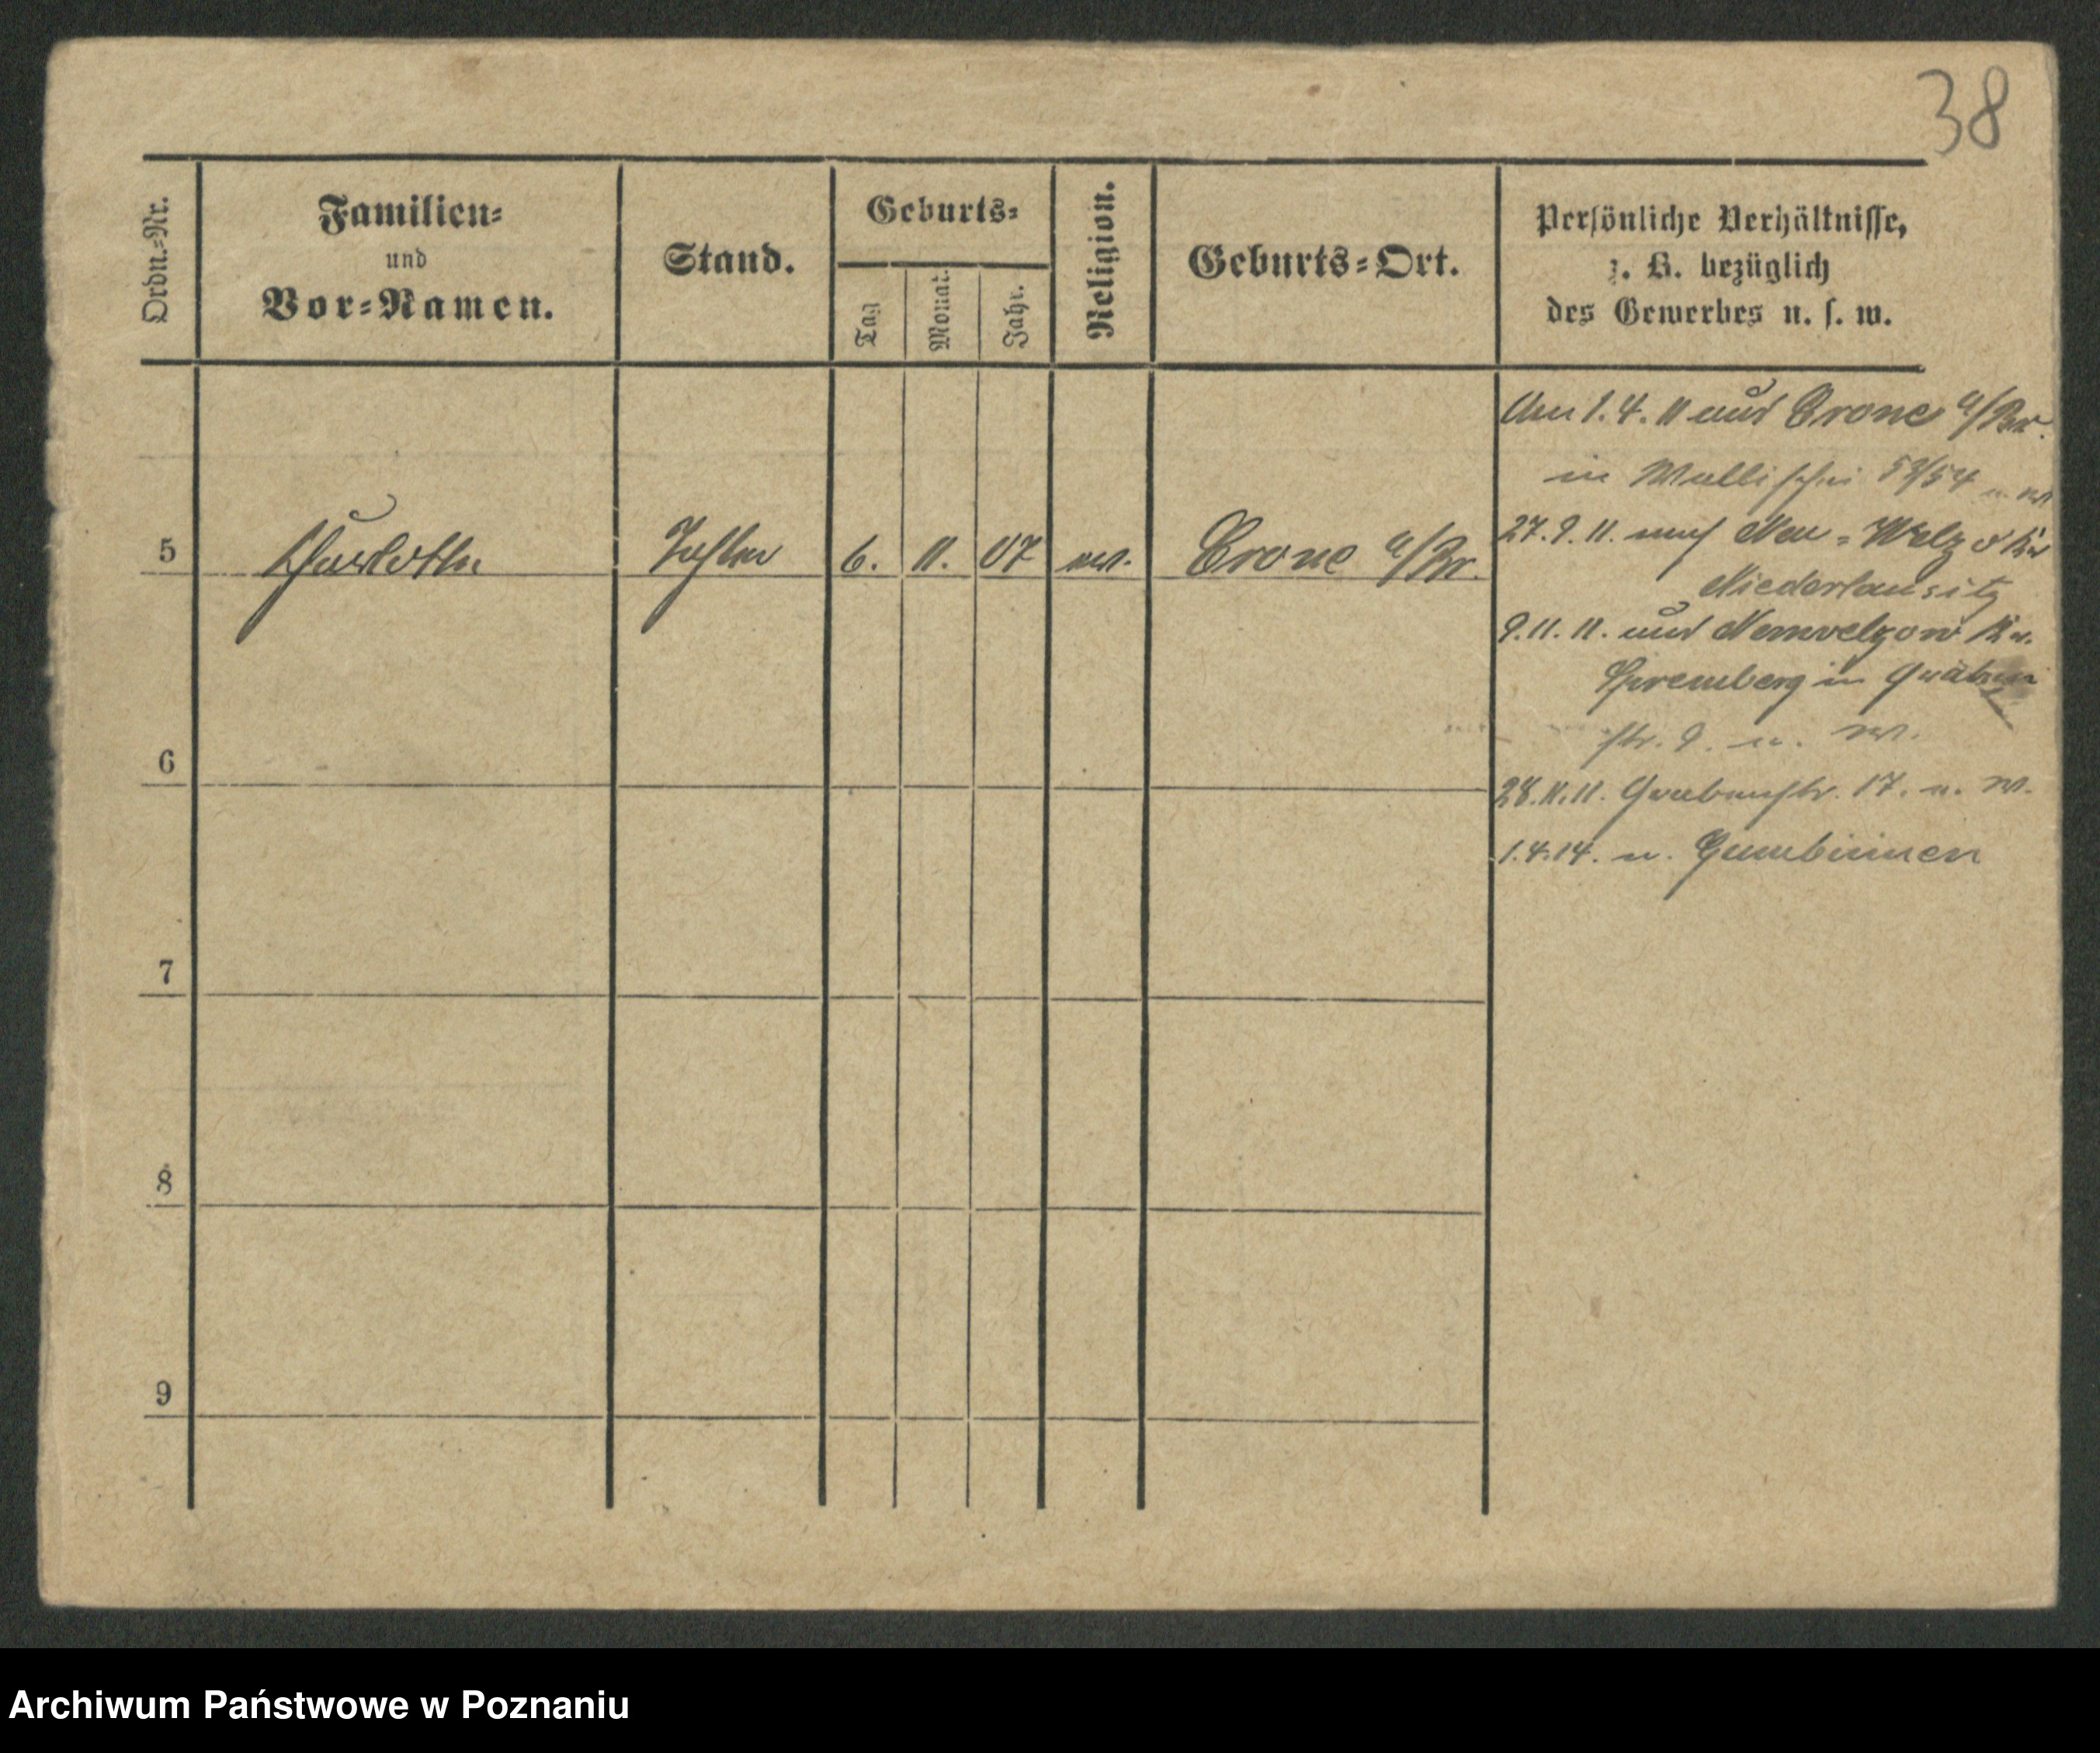 38
Ordn.-Nr.
Familien-
und
Vor-Namen.
Stand.
Geburts-
Tag
Monat.
Jahr.
Religion.
Geburts-Ort.
Persönliche Verhältnisse,
z. B. bezüglich
des Gewerbes u. s. w.
5 Charlotte Tochter 6. 11. 07 ev. Crone a/Br.
6
7
8
9
Am 1.4.11 aus Crone a/Br.
in Wallischei 53/54
27.9.11. nach Neu-Welzo Kr
Niederlausitz
9.11.11. aus Neuwelzow Kr.
Spremberg in Gräben
str. 9. u. w.
28.11.11. Grabenstr. 17. u. w.
1.4.14. n. Gumbinnen
Archiwum Państwowe w Poznaniu